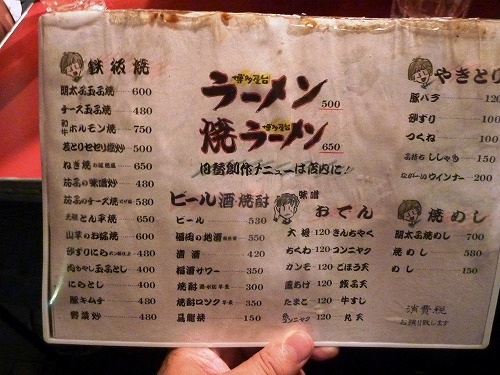 鉄板焼
明太子玉子焼 600
チーズ玉子焼 480
和牛ホルモン焼 750
若とりセセリ塩炒 500
ねぎ焼 650
茄子の味噌炒 480
茄子のチーズ焼 580
とん平焼 650
山芋のお好焼 600
砂ずりにら 480
肉もやし玉子とじ 400
にらとじ 400
豚キムチ 480
野菜炒 480
博多屋台
ラーメン 500
博多屋台
焼ラーメン 650
日替創作メニューは店内に!
ビール 酒 焼酎
ビール 530
福岡の地酒 550
清酒 420
梅酒サワー 350
焼酎 300
焼酎ロック 350
烏龍茶 150
味噌おでん
大根 120 きんちゃく
ちくわ 120 コンニャク
ガンモ 120 ごぼう天
厚あげ 120 餃子天
たまご 120 牛すじ
糸コンニャク 120 丸天
やきとり
豚バラ 120
砂ずり 100
つくね 100
子持ちししゃも 150
なが〜いウインナー 200
焼めし
明太子焼めし 700
焼めし 580
めし 150
消費税
お預り致します